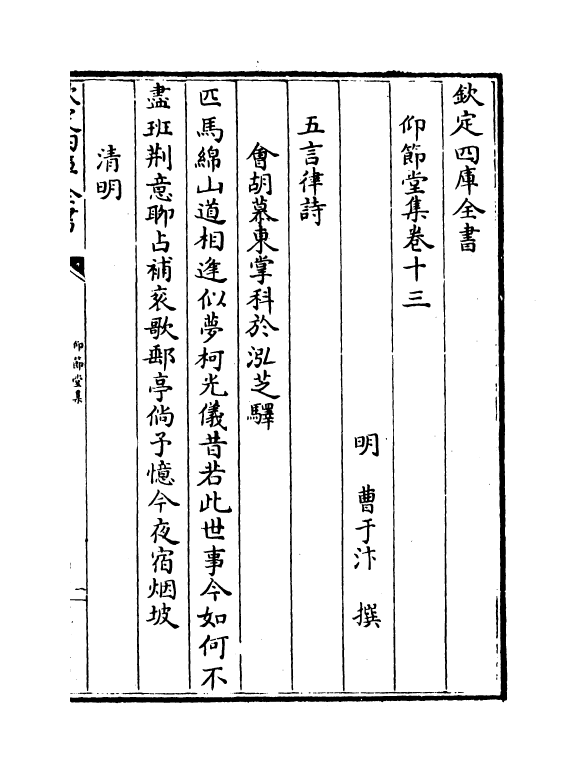 欽定四庫全書
仰節堂集卷十三
明 曹于汴 撰
五言律詩
會胡慕東掌科於泓芝驛
匹馬綿山道相逢似夢柯光儀昔若此世事今如何不
盡班荆意聊占補衮歌郵亭倘予憶今夜宿烟坡
清明
欽定四庫全書
仰節堂集
一